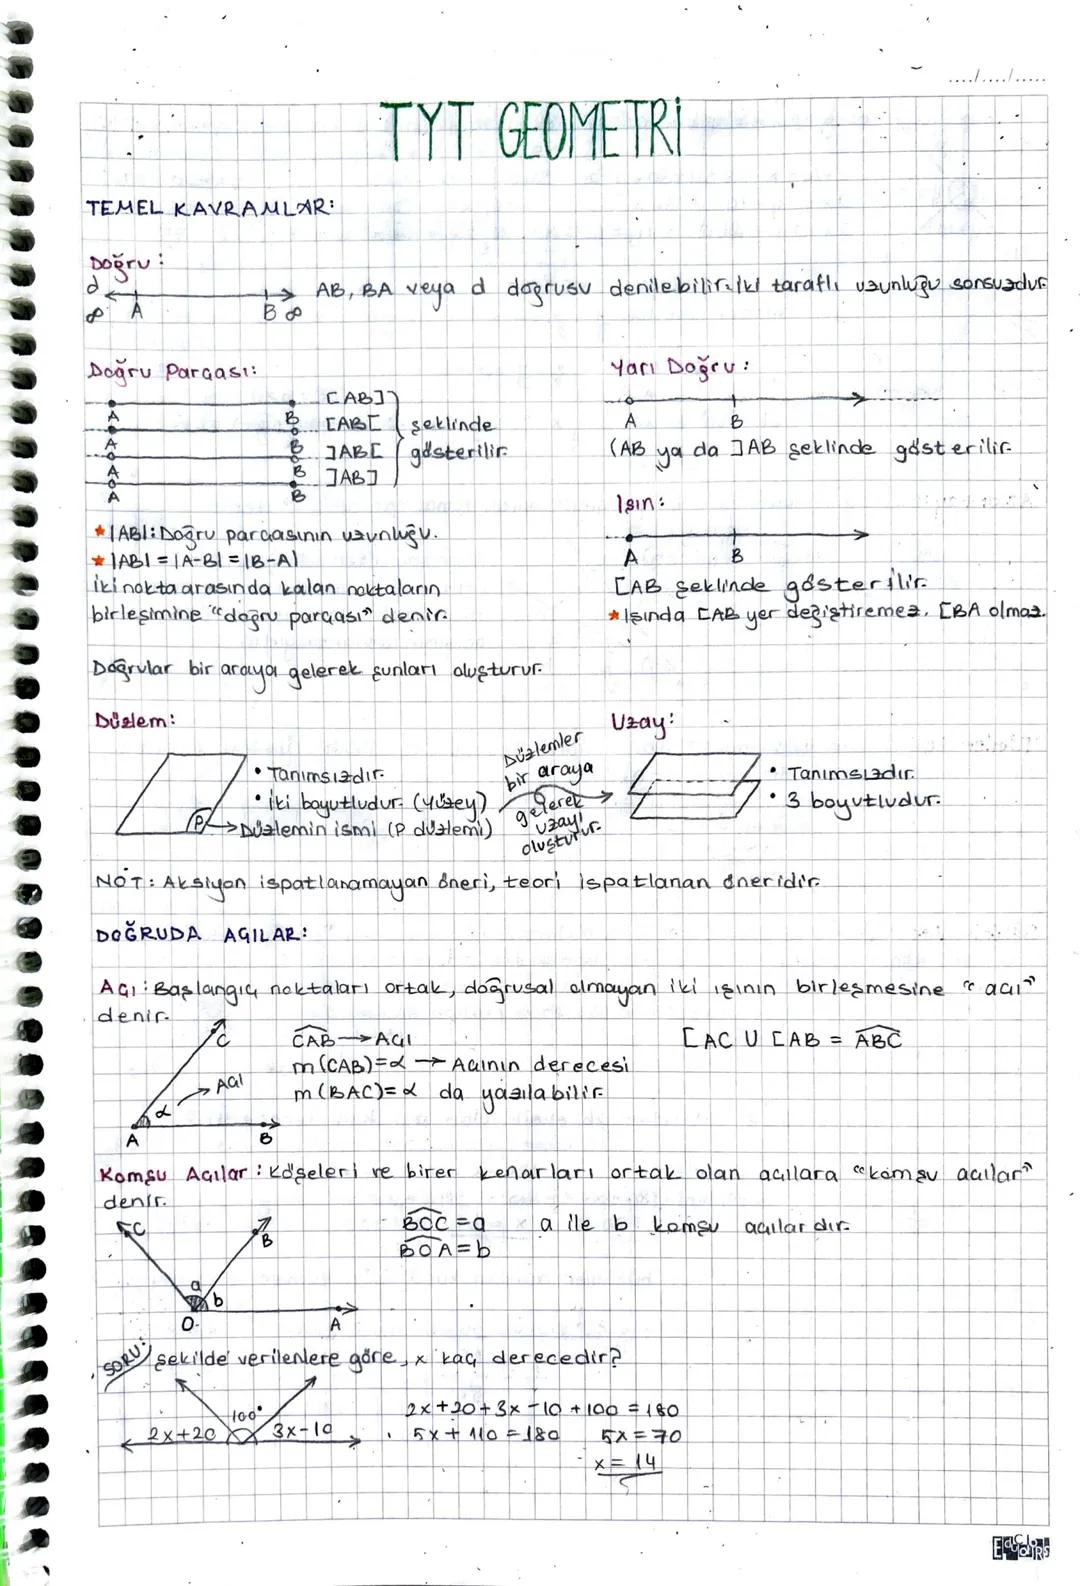 ..../..../.....
TYT GEOMETRİ
TEMEL KAVRAMLAR:
Doğru:
d
∞ A B ∞
AB, BA veya d doğrusu denilebilir. İki taraflı uzunluğu sonsuzdur.
Doğru Parçası:
A B [AB]
A B [AB[
A B ]AB[
A B ]AB]
şeklinde
gösterilir.
★|AB|: Doğru parçasının uzunluğu.
★|AB| = |A-B| = |B-A|
İki nokta arasında kalan noktaların
birleşimine "doğru parçası" denir.
Yarı Doğru:
A B
(AB ya da ]AB şeklinde gösterilir.
Işın:
A B
[AB şeklinde gösterilir.
★Işında [AB yer değiştiremez. [BA olmaz.
Doğrular bir araya gelerek şunları oluşturur.
Düzlem:
• Tanımsızdır.
• İki boyutludur. (Yüzey)
P →Düzlemin ismi (P düzlemi)
Düzlemler
bir araya
gelerek
uzayı
oluşturur.
Uzay:
• Tanımsızdır.
• 3 boyutludur.
NOT: Aksiyon ispatlanamayan öneri, teori ispatlanan öneridir.
DOĞRUDA AÇILAR:
Açı: Başlangıç noktaları ortak, doğrusal olmayan iki ışının birleşmesine "açı"
denir.
C
Açı
α
A B
CAB → AÇI
m(CAB)=α → Açının derecesi
m(BAC)=α da yazılabilir.
[AC U [AB = ABC
Komşu Açılar: Köşeleri ve birer kenarları ortak olan açılara "komşu açılar"
denir.
C B
a b
O A
BOC = a a ile b komşu açılardır.
BOA = b
SORU: Şekilde verilenlere göre, x kaç derecedir?
100°
2x+20 3x-10
2x+20+3x-10+100 = 180
5x+110 = 180 5x = 70
x = 14
Educlors